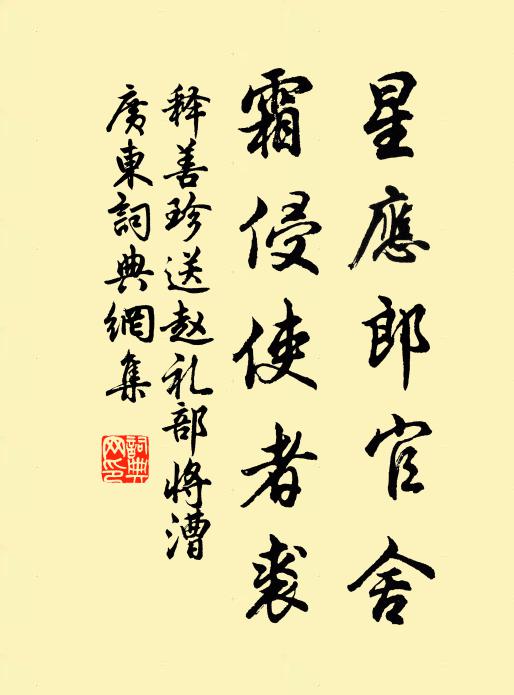 星應郎官舍
霜侵使者裘
释善珍送赵礼部將漕
廣東詞典網集
詞典网印